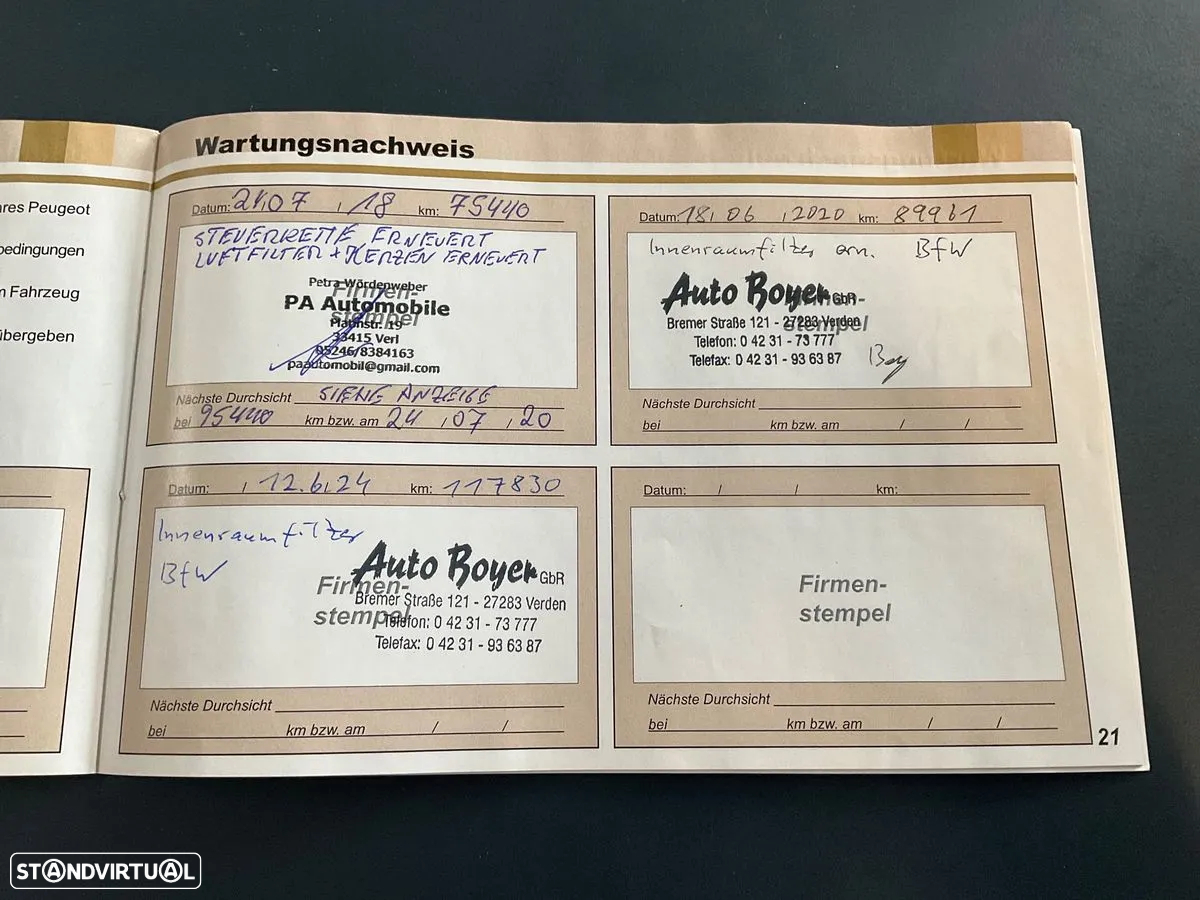 Wartungsnachweis
ares Peugeot
bedingungen
m Fahrzeug
übergeben
Datum: 24.07 / 18 km: 75440
STEUERKETTE ERNEUERT
LUFTFILTER + KERZEN ERNEUERT
Firmen-
stempel
Petra Wördenweber
PA Automobile
19
33415 Verl
05246/8384163
paautomobil@gmail.com
Nächste Durchsicht SIEHE ANZEIGE
bei 95440 km bzw. am 24 / 07 / 20
Datum: 18. 06 / 2020 km: 89961
Innenraumfilter ern. BfW
Firmen-
stempel
Auto Boyer GbR
Bremer Straße 121 - 27283 Verden
Telefon: 0 42 31 - 73 777
Telefax: 0 42 31 - 93 63 87
Nächste Durchsicht
bei km bzw. am / /
Datum: / 12.6.24 km: 117830
Innenraumfilter
BfW
Firmen-
stempel
Auto Boyer GbR
Bremer Straße 121 - 27283 Verden
Telefon: 0 42 31 - 73 777
Telefax: 0 42 31 - 93 63 87
Nächste Durchsicht
bei km bzw. am / /
Datum: / / km:
Firmen-
stempel
Nächste Durchsicht
bei km bzw. am / /
21
STANDVIRTUAL